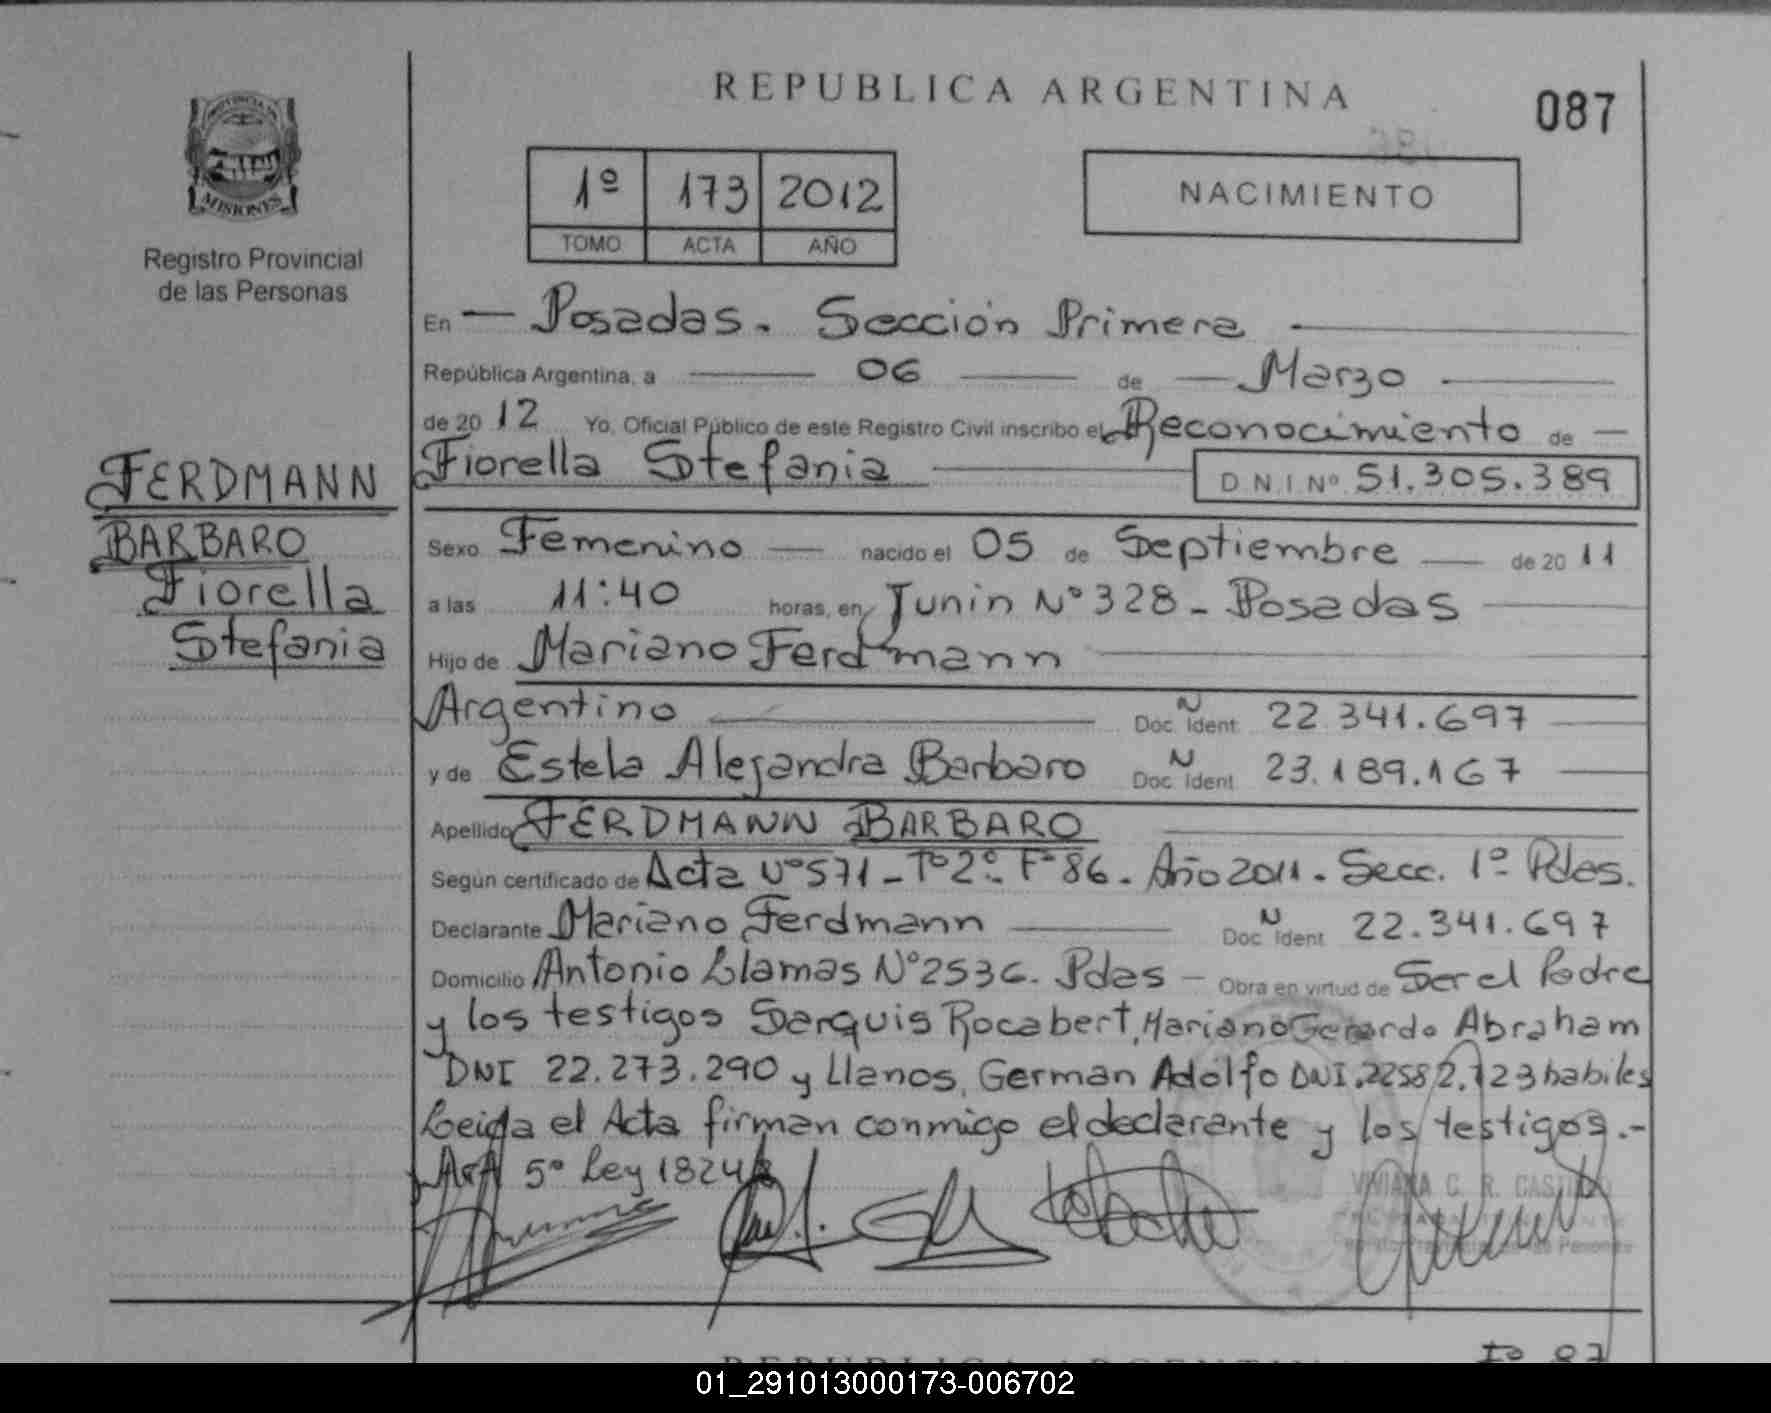 REPUBLICA ARGENTINA
087
PROVINCIA DE
MISIONES
Registro Provincial
de las Personas
1º 173 2012
TOMO ACTA AÑO
NACIMIENTO
En — Posadas. Sección Primera
República Argentina, a 06 de Marzo
de 2012 Yo, Oficial Público de este Registro Civil inscribo el Reconocimiento de
Fiorella Stefania D.N.I Nº 51.305.389
FERDMANN
BARBARO
Fiorella
Stefania
Sexo Femenino nacido el 05 de Septiembre de 2011
a las 11:40 horas, en Junin Nº 328 - Posadas
Hijo de Mariano Ferdmann
Argentino Doc. N Ident 22.341.697
y de Estela Alejandra Barbaro Doc. N Ident 23.189.167
Apellido FERDMANN BARBARO
Según certificado de Acta Nº 571 - Tº 2º - Fº 86 - Año 2011 - Secc. 1º Pdas.
Declarante Mariano Ferdmann Doc. N Ident 22.341.697
Domicilio Antonio Llamas Nº 2536. Pdas - Obra en virtud de Ser el Padre
y los testigos Sarquis Rocabert, Mariano Gerardo Abraham
DNI 22.273.290 y Llanos, German Adolfo DNI. 22582.723 habiles
Leida el Acta firman conmigo el declarante y los testigos.-
Art 5º Ley 18248
VIVIANA C. R.
REPUBLICA ARGENTINA
Fº 87
01_291013000173-006702